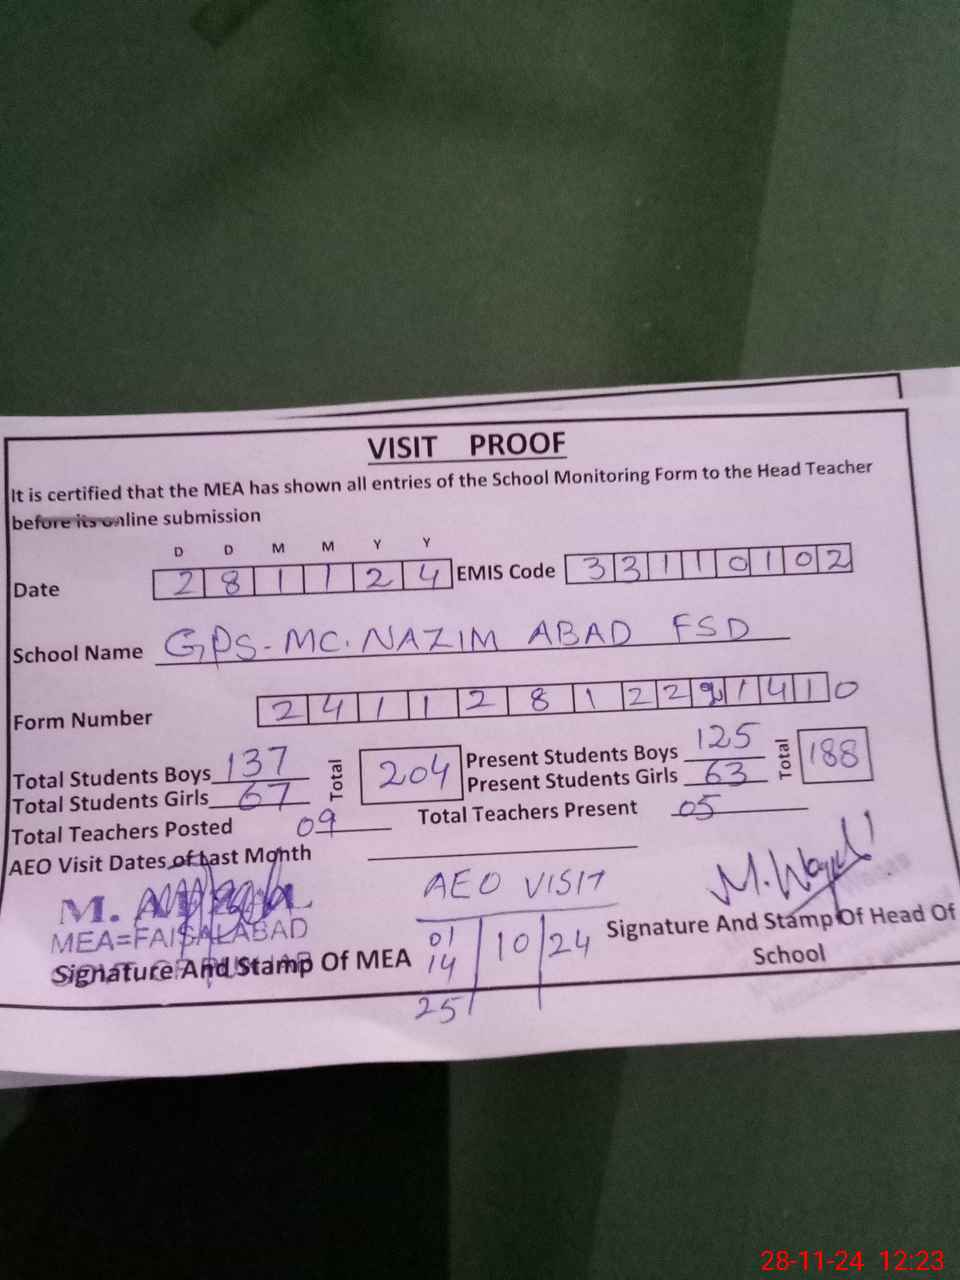 VISIT PROOF
It is certified that the MEA has shown all entries of the School Monitoring Form to the Head Teacher
before its online submission
D D M M Y Y
Date 2 8 1 1 2 4 EMIS Code 3 3 1 1 0 1 0 2
School Name GPS-MC. NAZIM ABAD FSD
Form Number 2 4 1 1 2 8 1 2 2 1 4 1 0
Total Students Boys 137 Total 204 Present Students Boys 125 Total 188
Total Students Girls 67 Present Students Girls 63
Total Teachers Posted 09 Total Teachers Present 05
AEO Visit Dates of Last Month
M.
MEA=FAISALABAD
Signature And Stamp Of MEA
AEO VISIT
01
14 10 24
25
Signature And Stamp Of Head Of
School
28-11-24 12:23